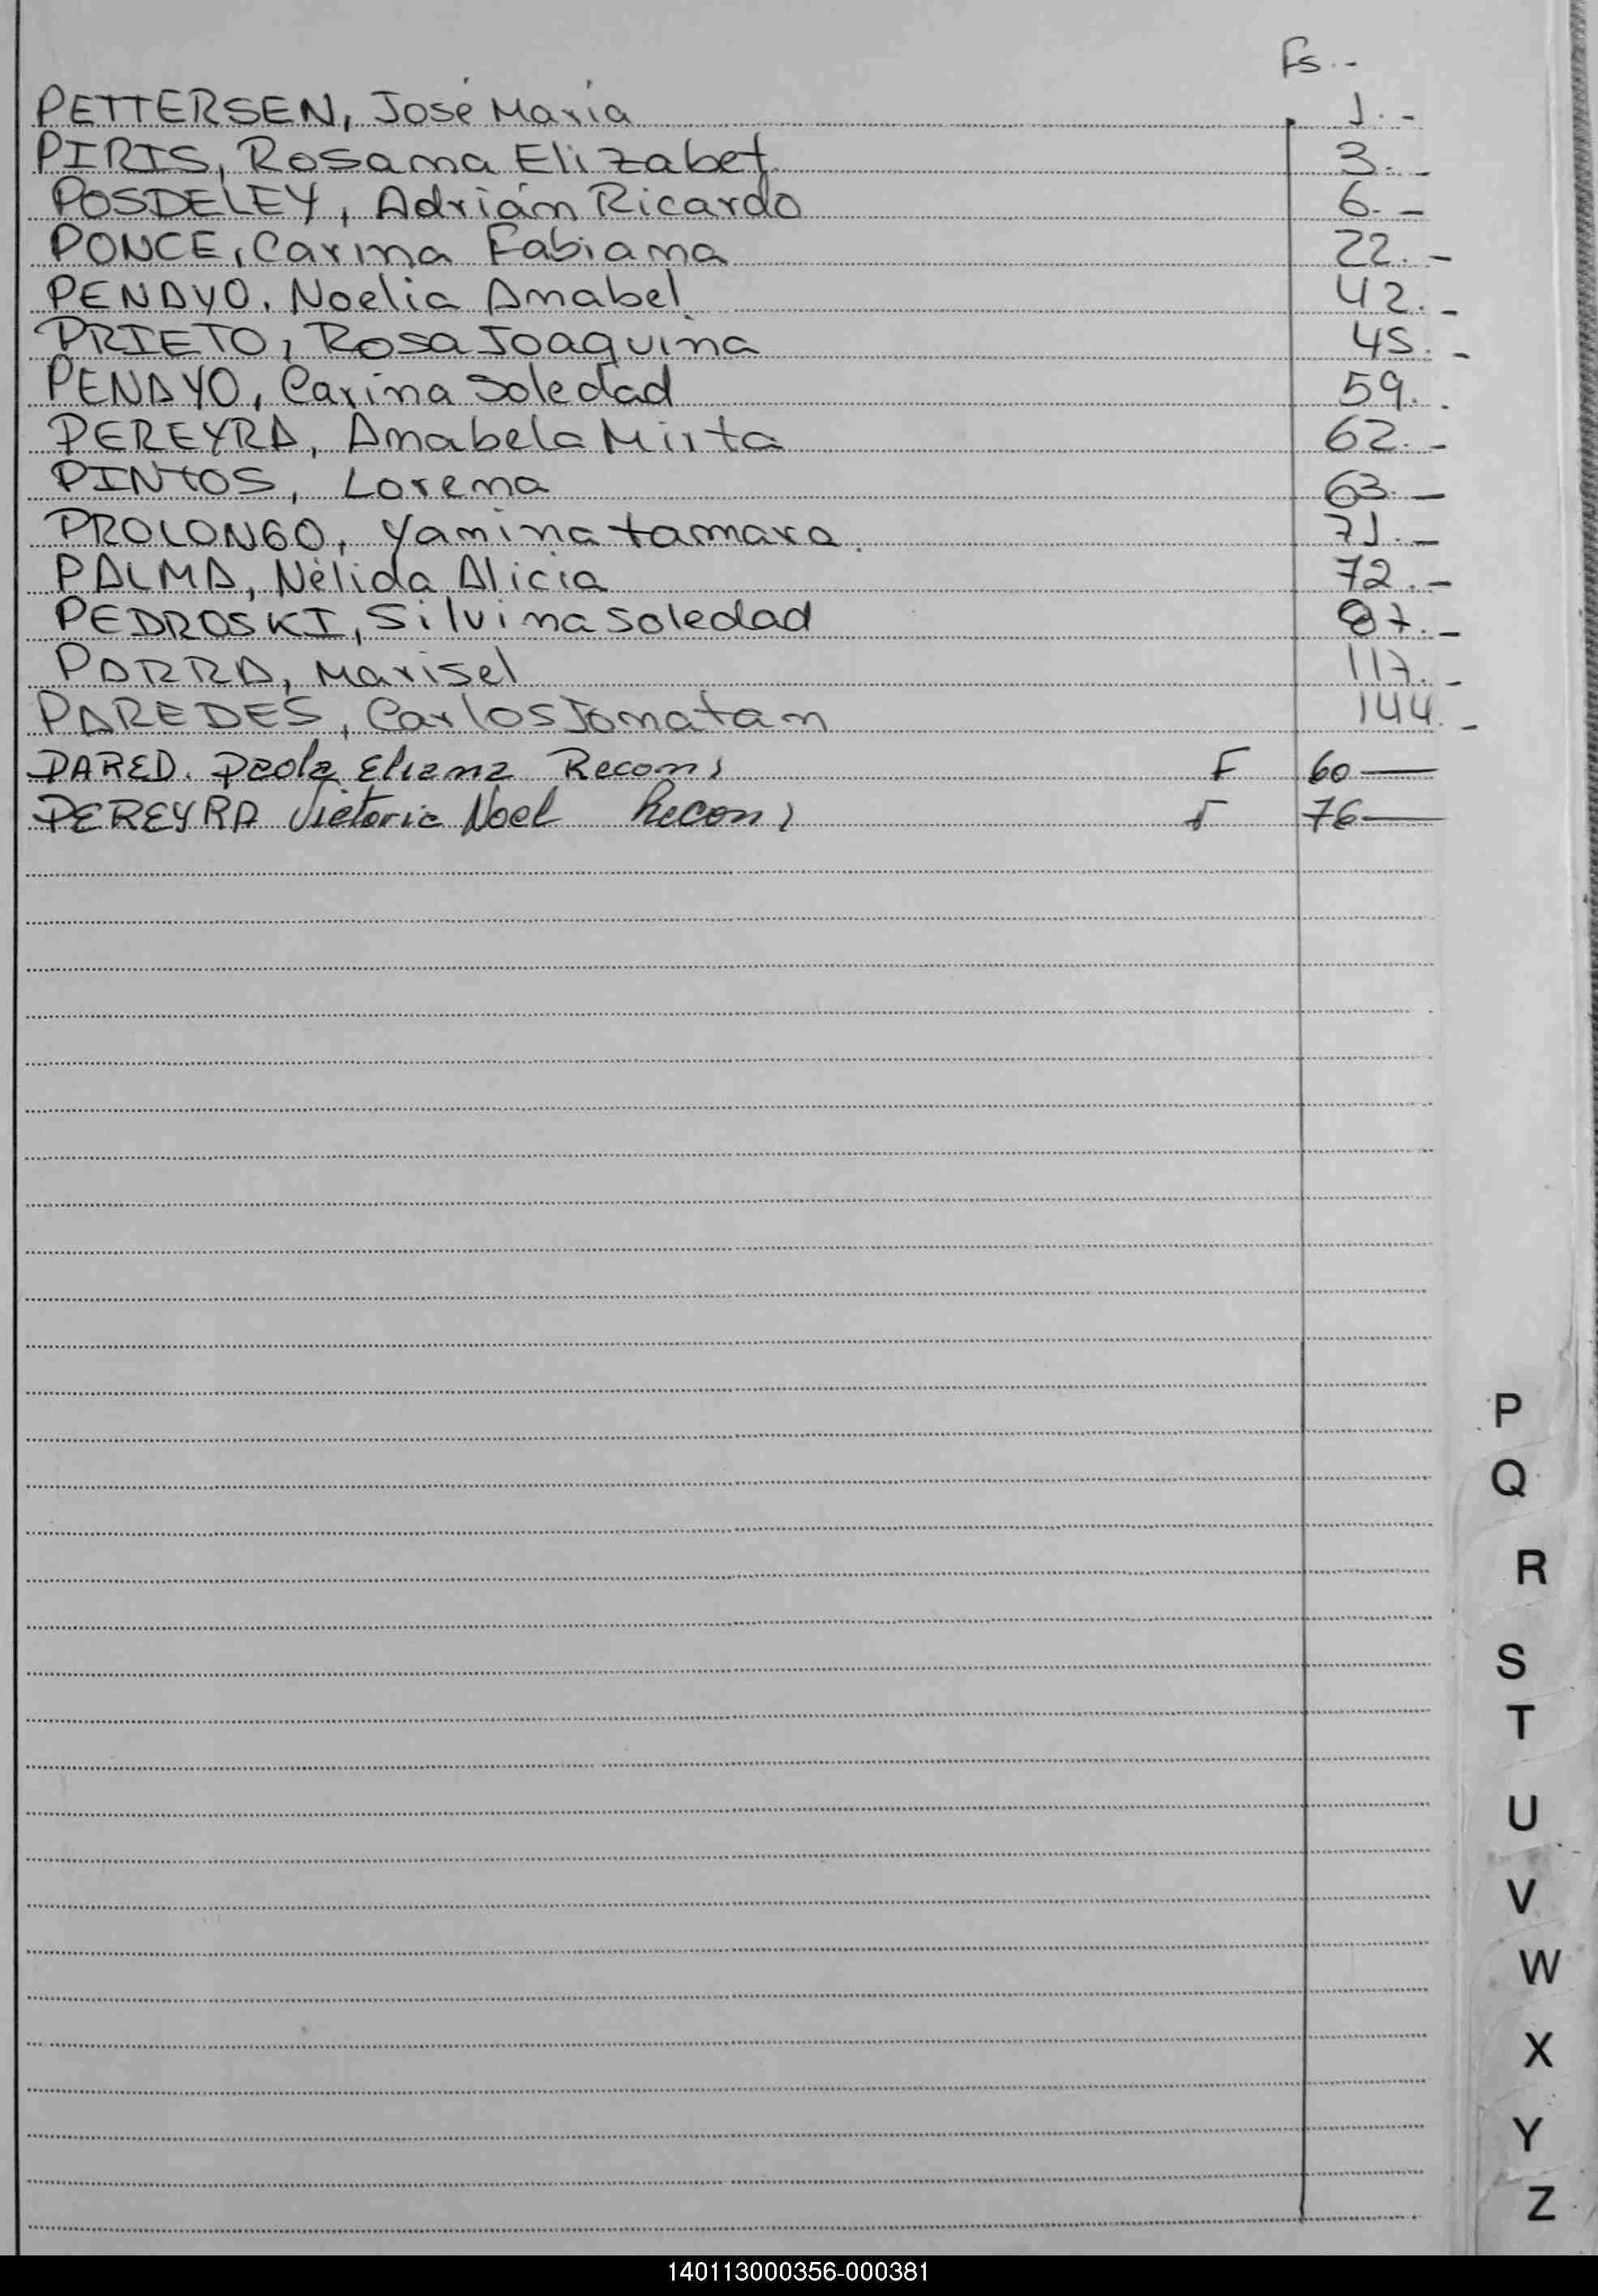 Fs.-
PETTERSEN, José María 1.-
PIRIS, Rosana Elizabet. 3.-
POSDELEY, Adrián Ricardo 6.-
PONCE, Carina Fabiana 22.-
PENAYO, Noelia Anabel 42.-
PRIETO, Rosa Joaquina 45.-
PENAYO, Carina Soledad 59.-
PEREYRA, Anabela Mirta 62.-
PINTOS, Lorena 63.-
PROLONGO, Yamina tamara. 71.-
PALMA, Nélida Alicia 72.-
PEDROSKI, Silvina Soledad 87.-
PARRA, Marisel 117.-
PAREDES, Carlos Jonatan 144.-
PARED. Paola Eliana Recon: F 60—
PEREYRA Victoria Noel Recon: F 76—
P
Q
R
S
T
U
V
W
X
Y
Z
140113000356-000381